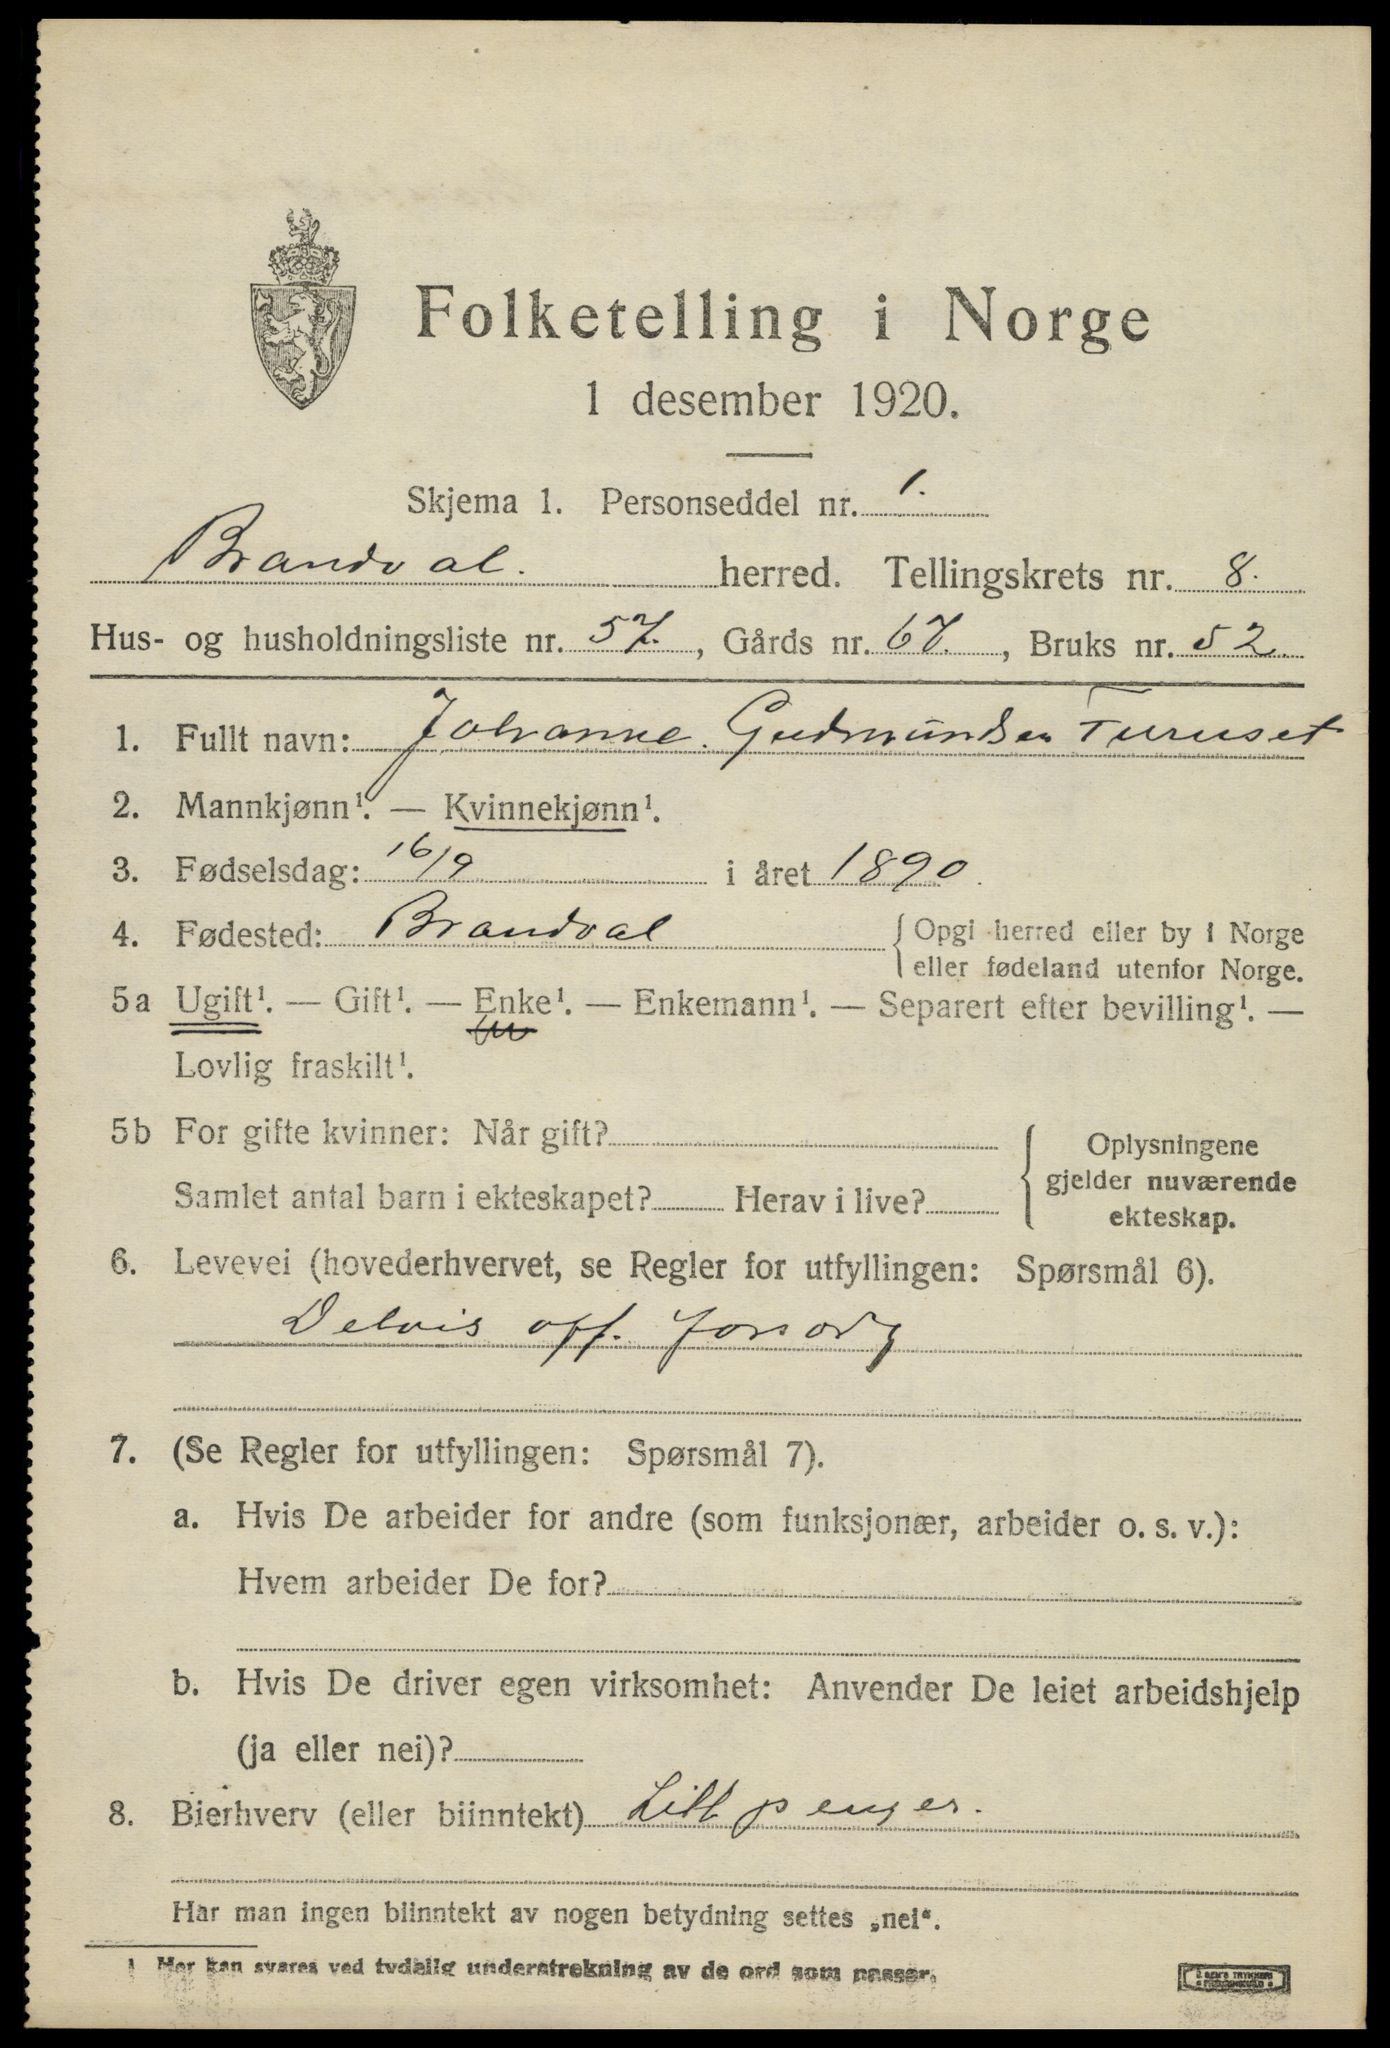 Folketelling i Norge
1 desember 1920.
Skjema 1. Personseddel nr. 1.
Brandval. herred. Tellingskrets nr. 8.
Hus- og husholdningsliste nr. 57., Gårds nr. 67., Bruks nr. 52.
1. Fullt navn: Johanne Gudmundsen Turuset
2. Mannkjønn¹. — Kvinnekjønn¹.
3. Fødselsdag: 16/9 i året 1890.
4. Fødested: Brandval { Opgi herred eller by i Norge
eller fødeland utenfor Norge.
5a Ugift¹. — Gift¹. — Enke¹. — Enkemann¹. — Separert efter bevilling¹. —
Lovlig fraskilt¹.
5b For gifte kvinner: Når gift? { Oplysningene
gjelder nuværende
Samlet antal barn i ekteskapet? Herav i live?
ekteskap.
6. Levevei (hovederhvervet, se Regler for utfyllingen: Spørsmål 6).
Delvis off. forsørg
7. (Se Regler for utfyllingen: Spørsmål 7).
a. Hvis De arbeider for andre (som funksjonær, arbeider o. s. v.):
Hvem arbeider De for?
b. Hvis De driver egen virksomhet: Anvender De leiet arbeidshjelp
(ja eller nei)?
8. Bierhverv (eller biinntekt) Litt penger.
Har man ingen biinntekt av nogen betydning settes „nei“.
1 Her kan svares ved tydelig understrekning av de ord som passer.